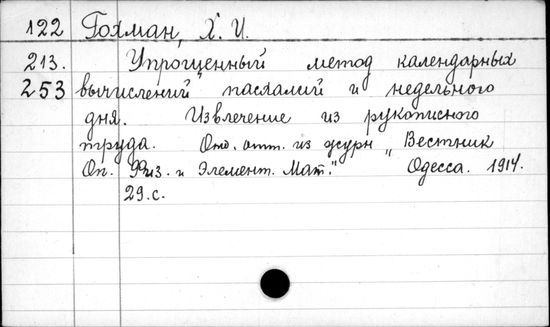 122 Гохман, Х. И.
213. Упрощенный метод календарных
253 вычислений, пасхалий и недельного
дня. Извлечение из рукописного
труда. Отд. отт. из журн „Вестник
Оп. Физ. и Элемент. Мат." Одесса. 1914.
29.с.